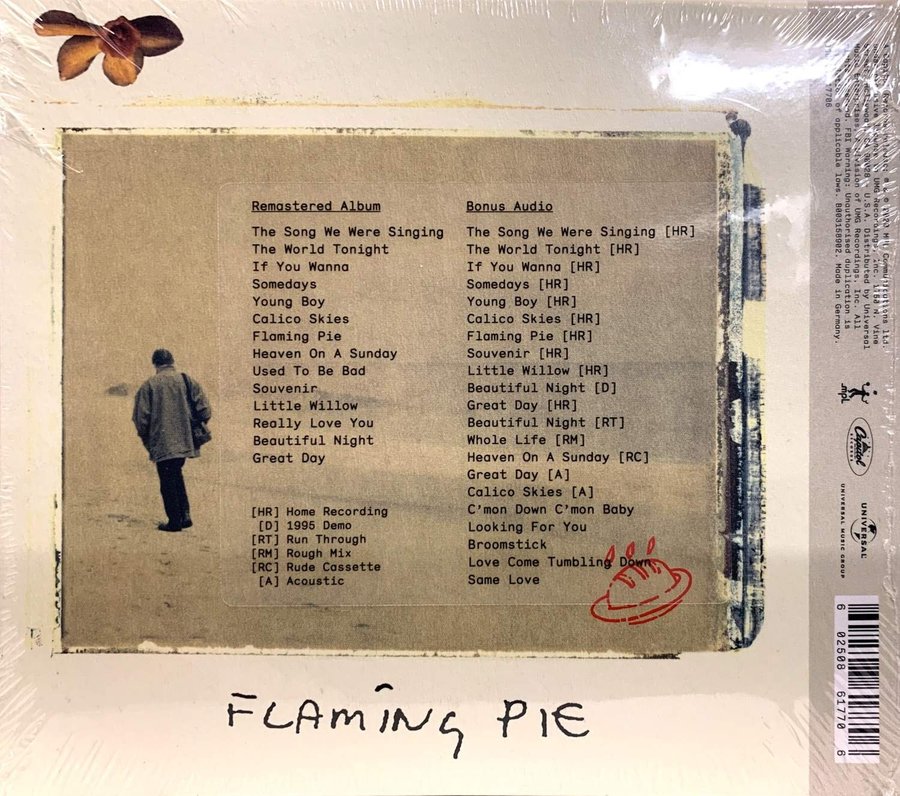 Remastered Album
The Song We Were Singing
The World Tonight
If You Wanna
Somedays
Young Boy
Calico Skies
Flaming Pie
Heaven On A Sunday
Used To Be Bad
Souvenir
Little Willow
Really Love You
Beautiful Night
Great Day
[HR] Home Recording
[D] 1995 Demo
[RT] Run Through
[RM] Rough Mix
[RC] Rude Cassette
[A] Acoustic
Bonus Audio
The Song We Were Singing [HR]
The World Tonight [HR]
If You Wanna [HR]
Somedays [HR]
Young Boy [HR]
Calico Skies [HR]
Flaming Pie [HR]
Souvenir [HR]
Little Willow [HR]
Beautiful Night [D]
Great Day [HR]
Beautiful Night [RT]
Whole Life [RM]
Heaven On A Sunday [RC]
Great Day [A]
Calico Skies [A]
C'mon Down C'mon Baby
Looking For You
Broomstick
Love Come Tumbling Down
Same Love
FLAMING PIE
Communications Ltd.
UMG Recordings, Inc. N. Vine
U.S.A. Distributed by Universal
a division of UMG Recordings, Inc. All
FBI Warning: Unauthorised duplication is
of applicable laws. B003158902. Made in Germany.
mpl
Capitol
RECORDS
UNIVERSAL
UNIVERSAL MUSIC GROUP
6 02508 61770 6